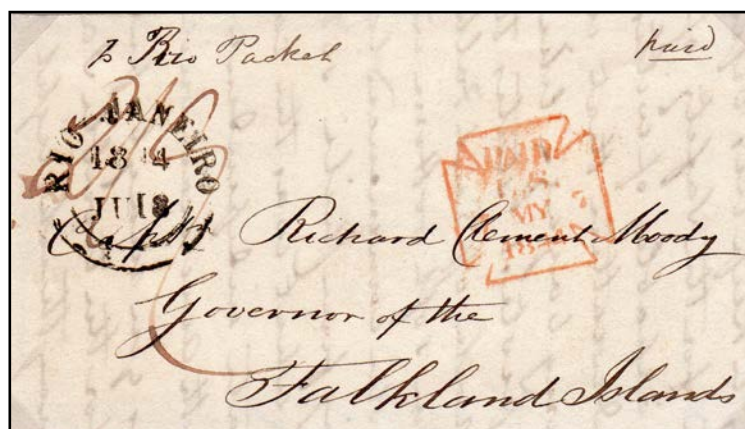 p Rio Packet
paid
RIO JANEIRO
1844
JU 18
PAID
MY
1844
Captn Richard Clement Moody
Governor of the
Falkland Islands